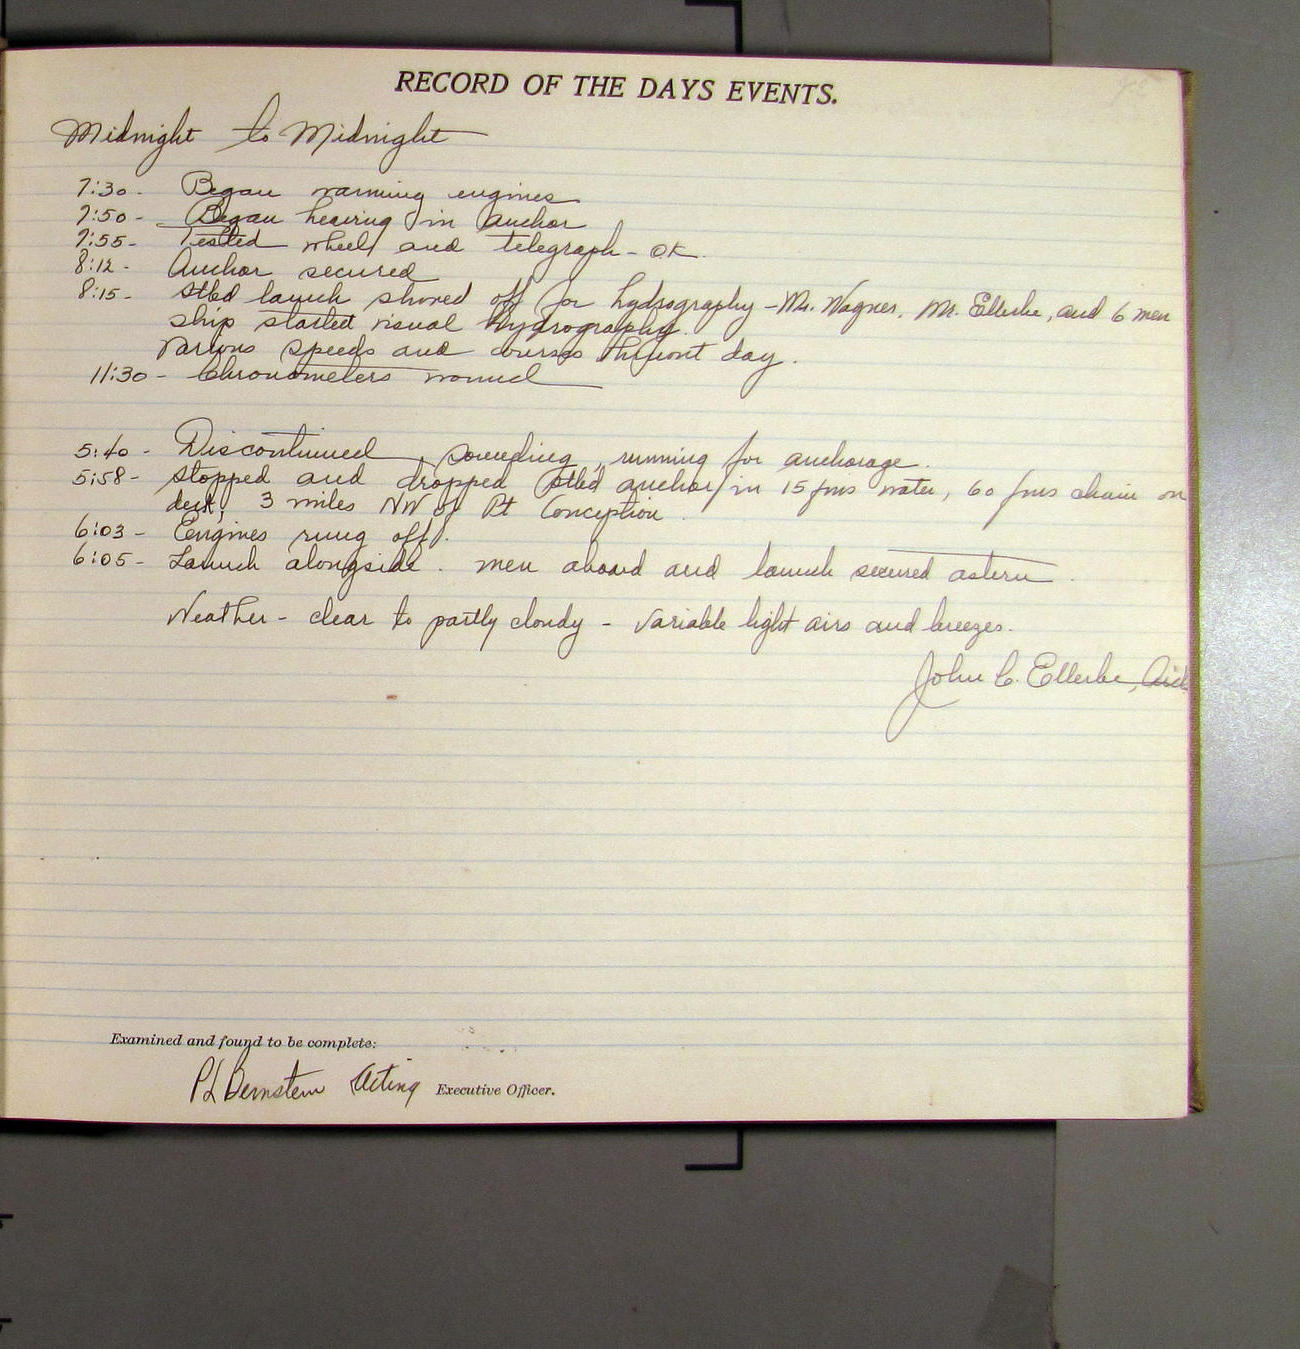 RECORD OF THE DAYS EVENTS.
Midnight to Midnight
7:30 - Began warming engines
7:50 - Began heaving in anchor
7:55 - Tested wheel and telegraph - OK.
8:12 - Anchor secured
8:15 - Stbd launch shoved off for hydrography - Mr. Wagner, Mr. Ellerbe, and 6 men
ship started visual hydrography.
Various speeds and courses thruout day.
11:30 - Chronometers wound
5:40 - Discontinued sounding, running for anchorage.
5:58 - Stopped and dropped stbd anchor in 15 fms water, 60 fms chain on
deck, 3 miles NW of Pt Conception.
6:03 - Engines rung off.
6:05 - Launch alongside. men aboard and launch secured astern.
Weather - clear to partly cloudy - variable light airs and breezes.
John C. Ellerbe,
Examined and found to be complete:
PL Bernstein Acting Executive Officer.